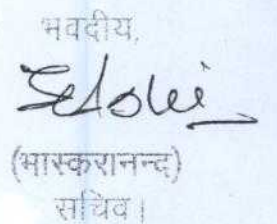 भवदीय,
(भास्करानन्द)
सचिव।